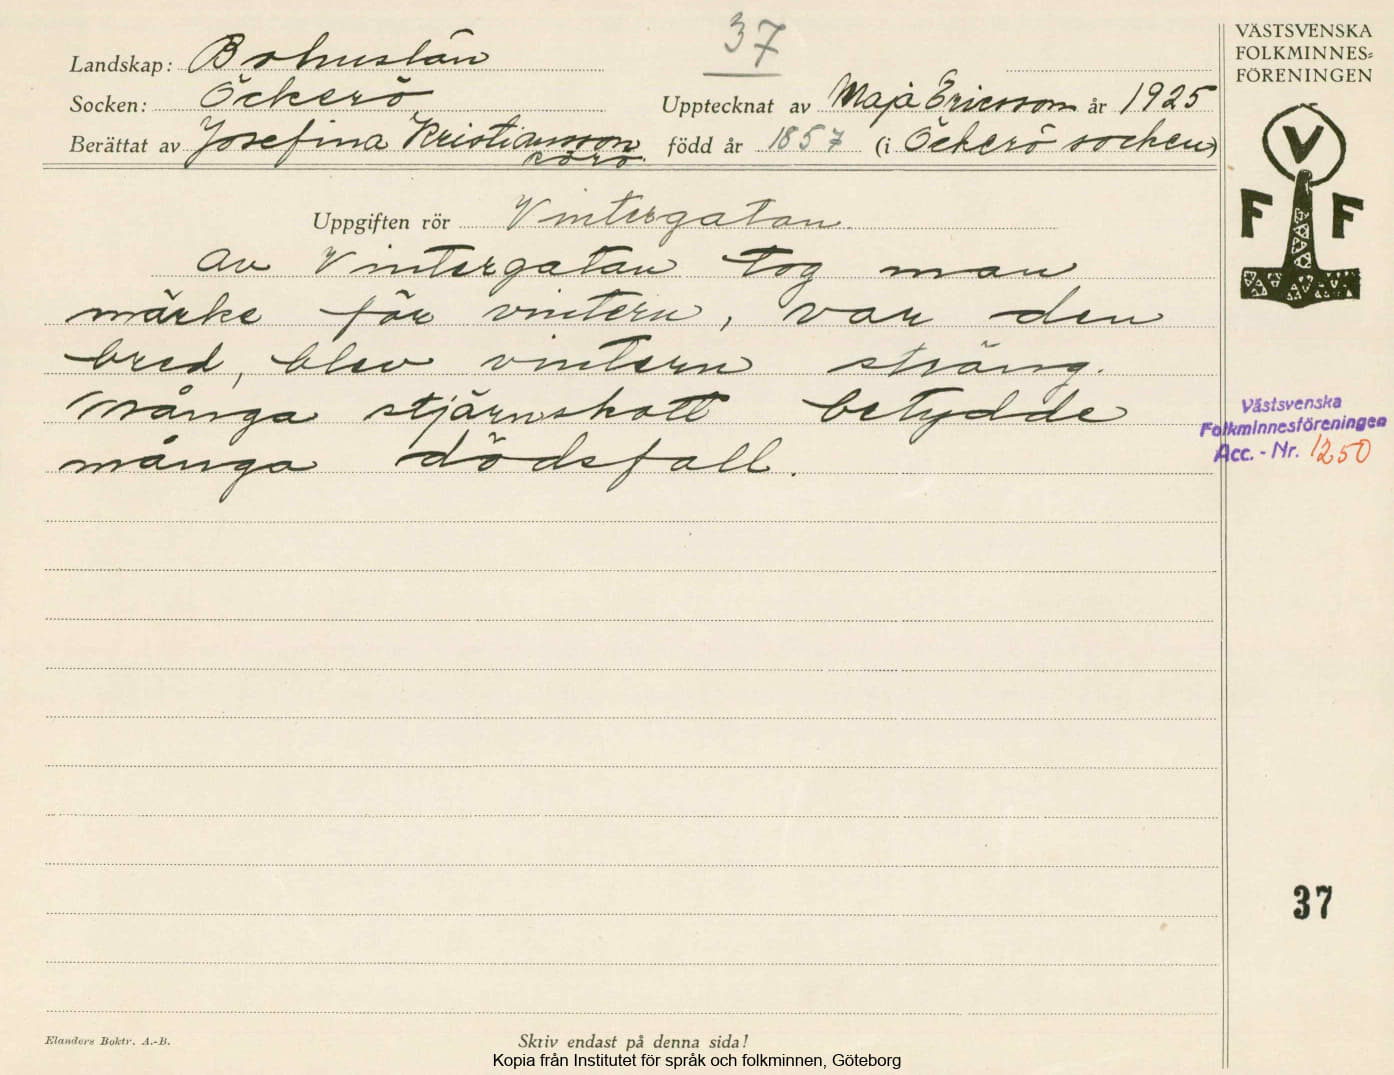 37
VÄSTSVENSKA
FOLKMINNES=
FÖRENINGEN
Landskap: Bohuslän
Socken: Öckerö
Upptecknat av Maja Ericsson år 1925
Berättat av Josefina Kristiansson
född år 1857 (i Öckerö socken)
V
F F
Uppgiften rör Vintergatan.
Av Vintergatan tog man
märke för vintern, var den
bred, blev vintern sträng.
Många stjärnskott betydde
många dödsfall.
Västsvenska
Folkminnesföreningen
Acc. - Nr. 1250
37
Elanders Boktr. A.-B.
Skriv endast på denna sida!
Kopia från Institutet för språk och folkminnen, Göteborg